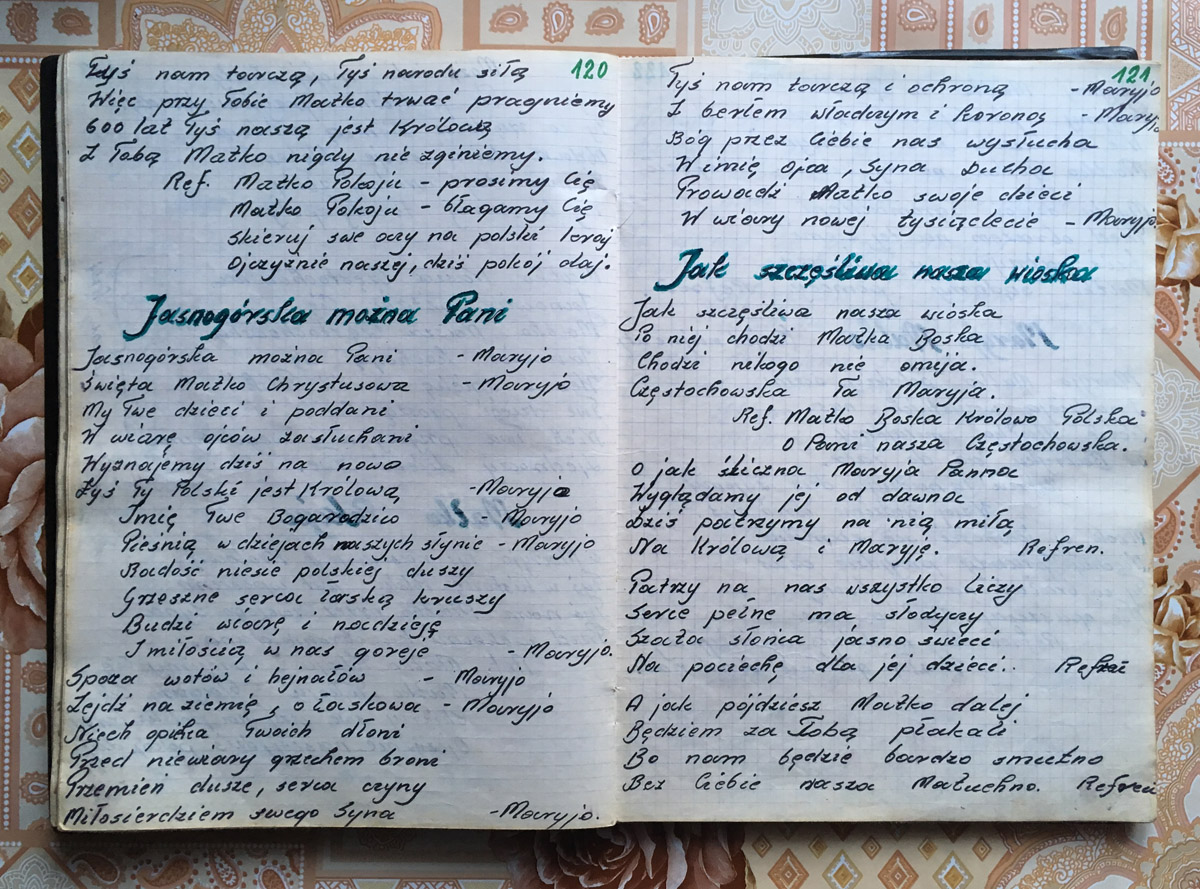 120
Tyś nam tarczą, Tyś narodu siłą
Więc przy Tobie Matko trwać pragniemy
600 lat Tyś naszą jest Królową
Z Tobą Matko nigdy nie zginiemy.
Ref. Matko Pokoju - prosimy Cię
Matko Pokoju - błagamy Cię
Skieruj swe oczy na polski kraj
Ojczyźnie naszej, dziś pokój daj.
Jasnogórska można Pani
Jasnogórska można Pani - Maryjo
Święta Matko Chrystusowa - Maryjo
My Twe dzieci i poddani
W wiarę ojców zasłuchani
Wyznajemy dziś na nowo
Żyś Ty Polski jest Królową -Maryjo
Imię Twe Bogarodzico - Maryjo
Pieśnią w dziejach naszych słynie - Maryjo
Radość niesie polskiej duszy
Grzeszne serca łaską kruszy
Budzi wiarę i nadzieję
I miłością w nas goreje - Maryjo.
Spoza wotów i hejnałów - Maryjo
Zejdź na ziemię, o łaskowa - Maryjo
Niech opieka Twoich dłoni
Przed niewiary grzechem broni
Przemień dusze, serca czyny
Miłosierdziem swego Syna -Maryjo.
121
Tyś nam tarczą i ochroną -Maryjo
Z berłem władczym i koroną - Maryjo
Bóg przez Ciebie nas wysłucha
W imię Ojca, Syna Ducha
Prowadź Matko swoje dzieci
W wiary nowej tysiąclecie - Maryjo.
Jak szczęśliwa nasza wioska
Jak szczęśliwa nasza wioska
Po niej chodzi Matka Boska
Chodzi nikogo nie omija.
Częstochowska Ta Maryja.
Ref. Matko Boska Królowo Polska
O Pani nasza Częstochowska.
O jak śliczna Maryja Panna
Wyglądamy jej od dawna
Dziś patrzymy na nią miłą
Na Królową i Maryję. Refren.
Patrzy na nas wszystko liczy
Serce pełne ma słodyczy
Szata słońca jasno świeci
Na pociechę dla jej dzieci.. Refren
A jak pójdziesz Matko dalej
Będziem za Tobą płakali
Bo nam będzie bardzo smutno
Bez Ciebie nasza Matuchno. Refren